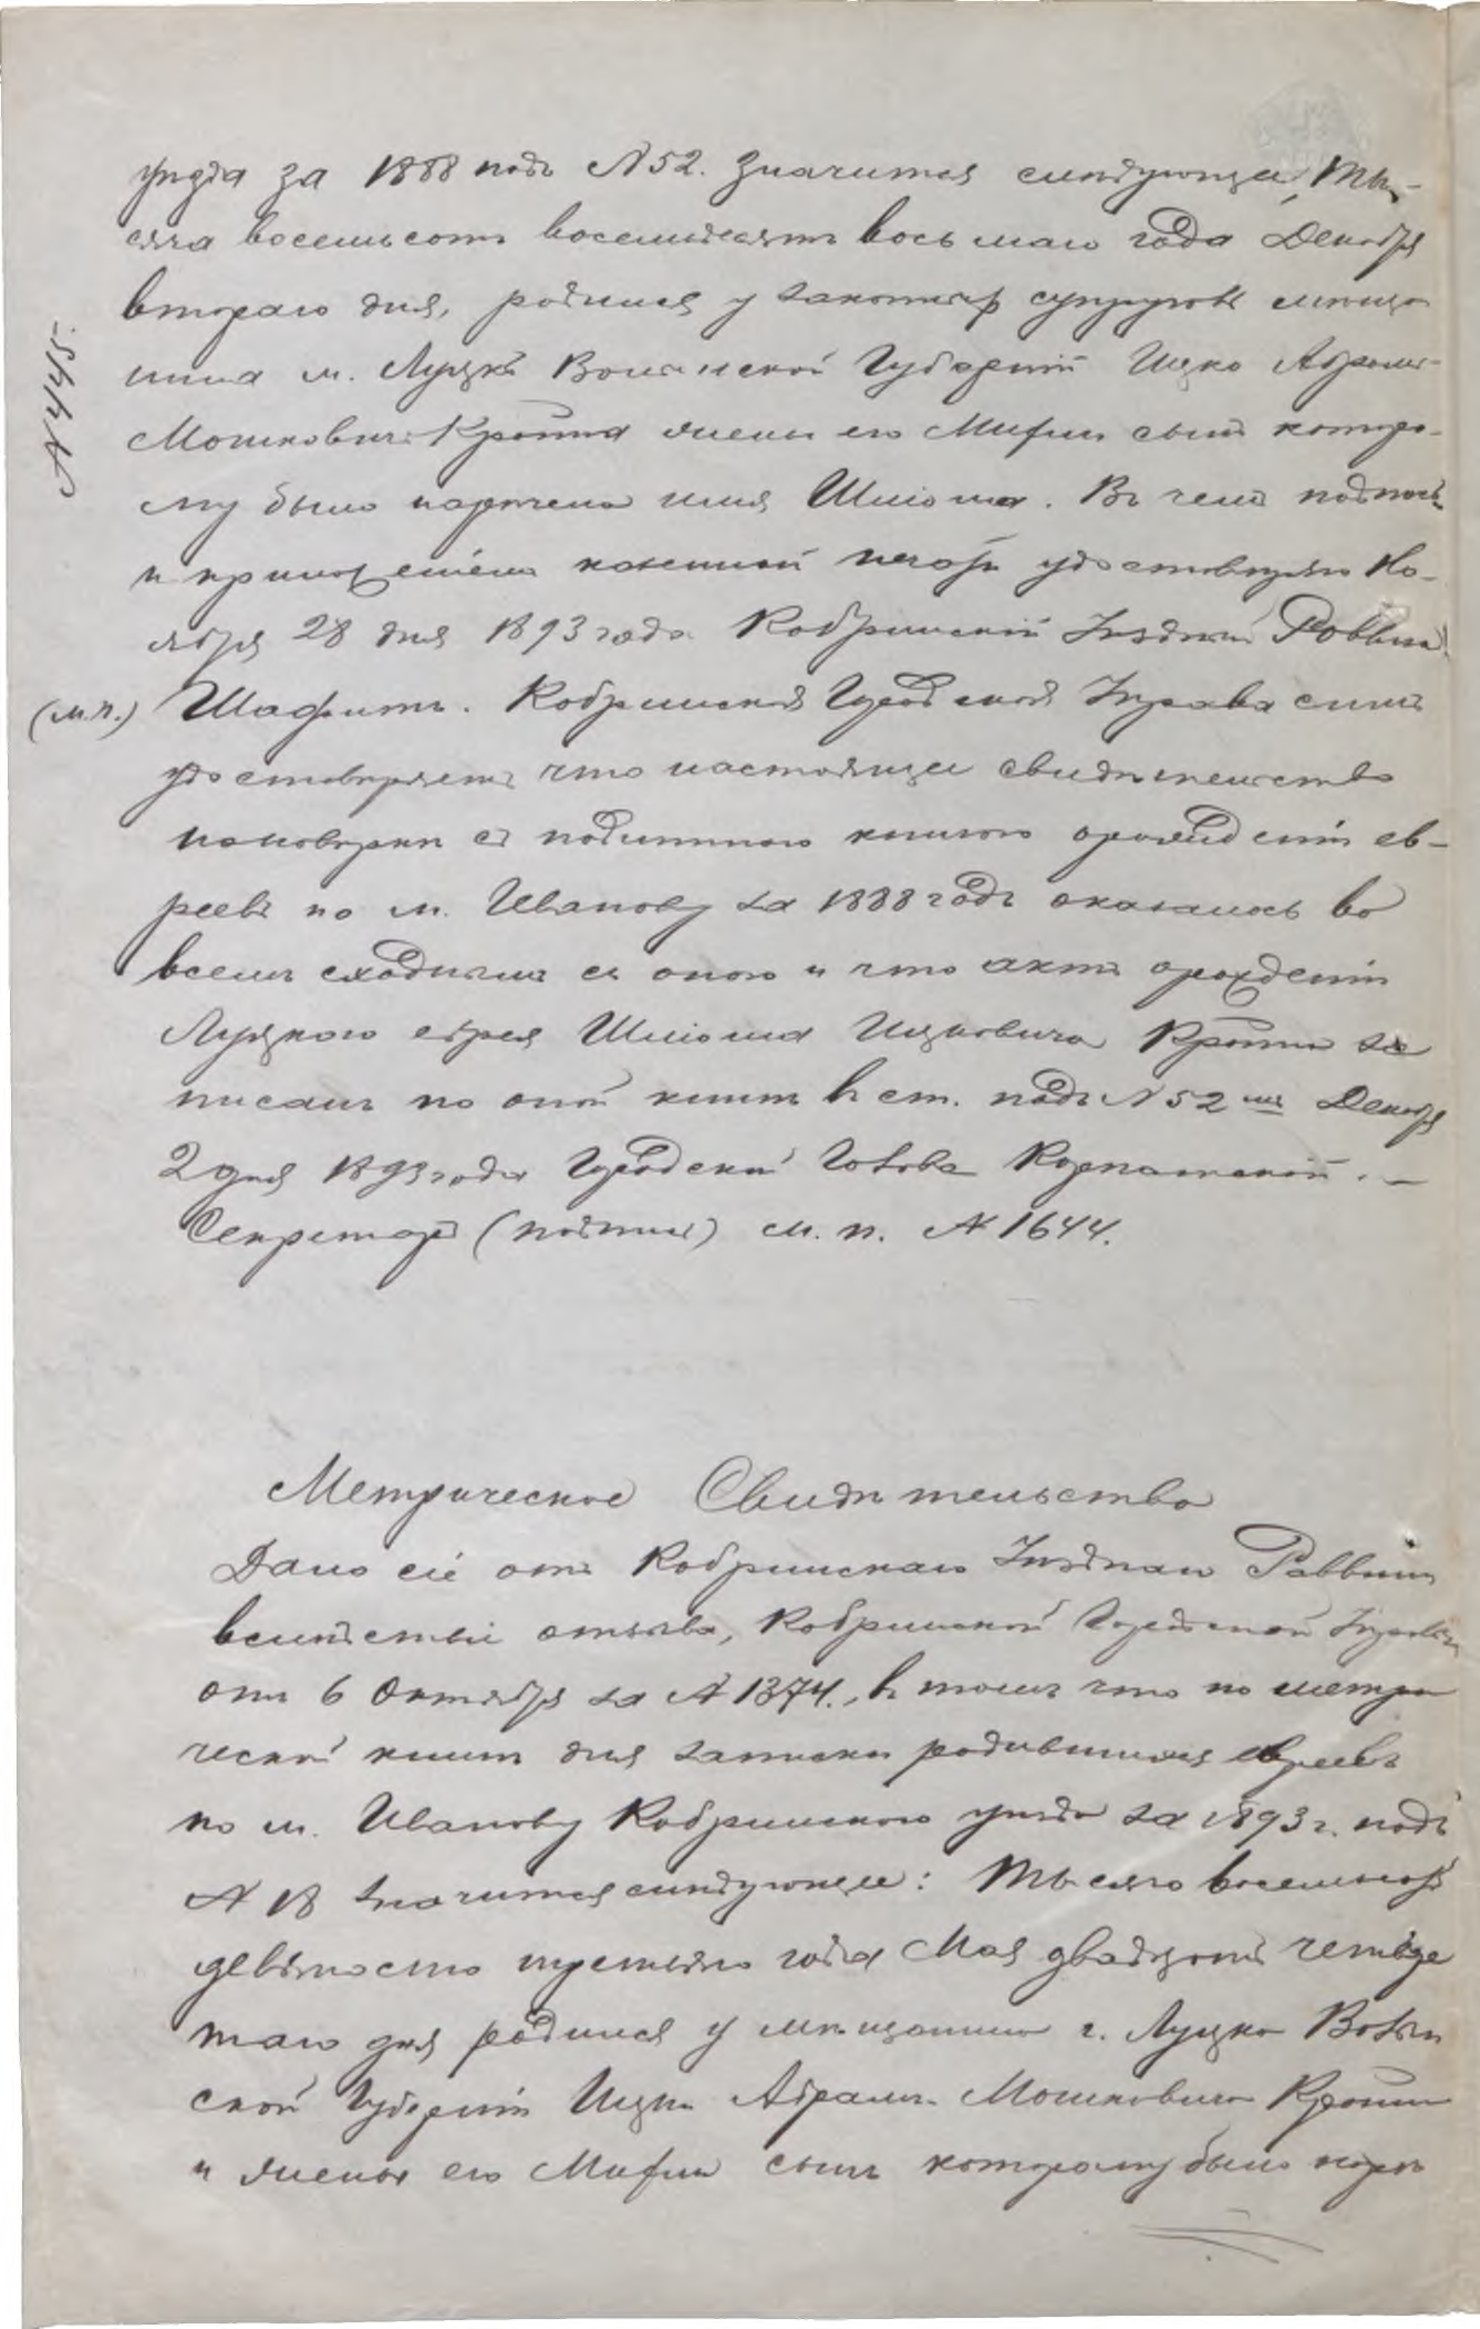 уѣзда за 1888 подъ №52. значится слѣдующее, Ты-
сяча восемьсотъ восемьдесятъ восьмаго года Декабря
втораго дня, родился у законныхъ супруговъ мѣща
нина м. Луцка Волынской Губерніи Ицко Абрамъ-
№ 445.
Мошковича Кройна жены его Мифли сынъ которо-
му было наречено имя Шліома. Въ чемъ подписью
и приложеніемъ казенной печати удостовѣряю Но-
ября 28 дня 1893 года Кобринскій Уѣздный Раввинъ
(м.п.) Шафитъ. Кобринская Городская Управа симъ
удостовѣряетъ что настоящее свидѣтельство
по повѣркѣ съ подлинною книгою о рожденіи ев-
реевъ по м. Иванову за 1888 годъ оказалось во
всемъ сходнымъ съ оною и что актъ о рожденіи
Луцкаго еврея Шліома Ицковича Кройна за
писанъ по оной книгѣ въ ст. подъ №52 мъ Декабря
2 дня 1893 года Городской Голова
Секретарь (подпись) м. п. № 1644.
Метрическое Свидѣтельство
Дано сіе отъ Кобринскаго Уѣзднаго Раввина
вслѣдствіе отзыва, Кобринской Городской Управы
отъ 6 Октября за № 1374., въ томъ что по метри
ческой книгѣ для записки родившихся евреевъ
по м. Иванову Кобринскаго уѣзда за 1893 г. подъ
№ 18 значится слѣдующее: Тысяча восемьсотъ
девяносто третьяго года Мая двадцать четвер
таго дня родился у мѣщанина г. Луцка Волын
ской Губерніи Ицки Абрамъ Мошковича Кройна
и жены его Мифли сынъ которому было наре